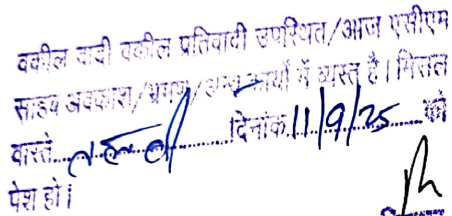 वकील वादी वकील प्रतिवादी उपस्थित/आज एसीएम
साहब अवकाश/भ्रमण/अन्य कार्यों में व्यस्त है। मिसल
वास्ते.......... दिनांक 11/9/25 को
पेश हो।